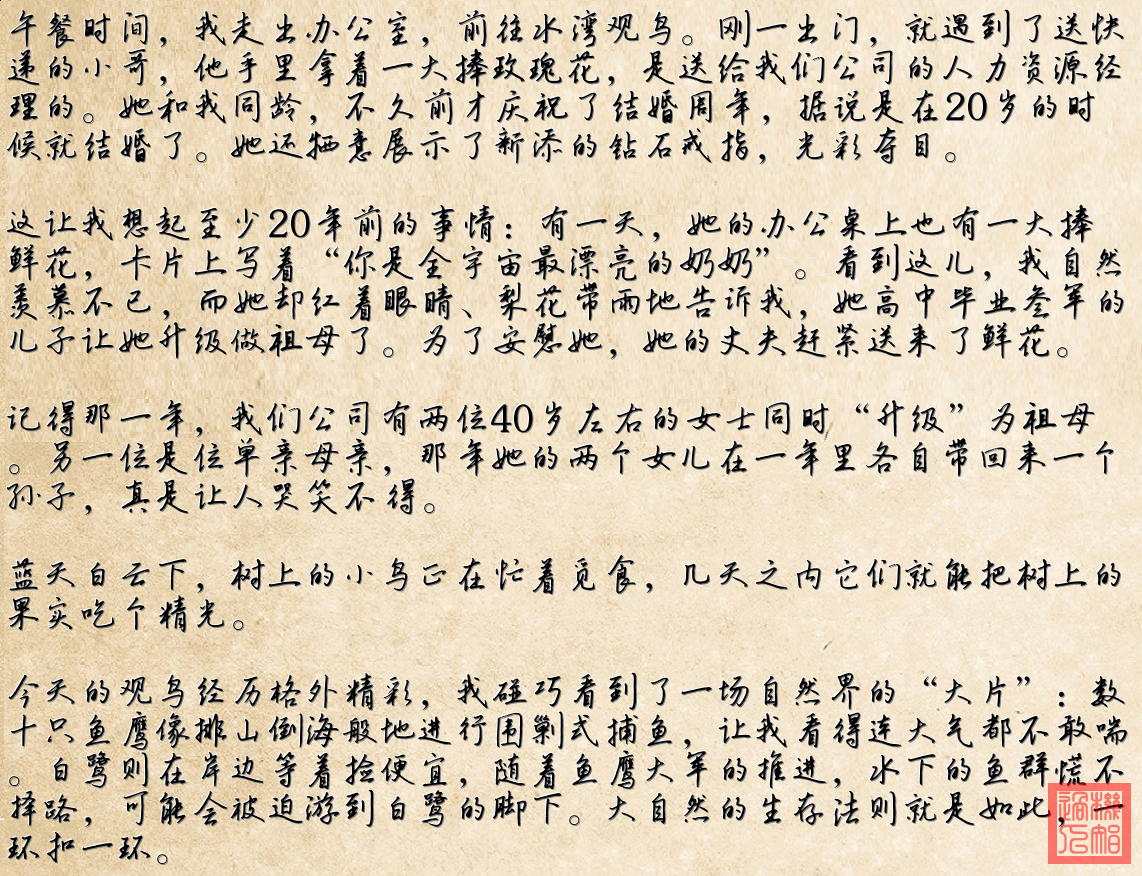 午餐时间，我走出办公室，前往水湾观鸟。刚一出门，就遇到了送快
递的小哥，他手里拿着一大捧玫瑰花，是送给我们公司的人力资源经
理的。她和我同龄，不久前才庆祝了结婚周年，据说是在20岁的时
候就结婚了。她还牺意展示了新添的钻石戒指，光彩夺目。
这让我想起至少20年前的事情：有一天，她的办公桌上也有一大捧
鲜花，卡片上写着“你是全宇宙最漂亮的奶奶”。看到这儿，我自然
羡慕不已，而她却红着眼睛、梨花带雨地告诉我，她高中毕业叁军的
儿子让她升级做祖母了。为了安慰她，她的丈夫赶紧送来了鲜花。
记得那一年，我们公司有两位40岁左右的女士同时“升级”为祖母
。另一位是位单亲母亲，那年她的两个女儿在一年里各自带回来一个
孙子，真是让人哭笑不得。
蓝天白云下，树上的小鸟正在忙着觅食，几天之内它们就能把树上的
果实吃个精光。
今天的观鸟经历格外精彩，我碰巧看到了一场自然界的“大片”：数
十只鱼鹰像排山倒海般地进行围剿式捕鱼，让我看得连大气都不敢喘
。白鹭则在岸边等着捡便宜，随着鱼鹰大军的推进，水下的鱼群慌不
择路，可能会被迫游到白鹭的脚下。大自然的生存法则就是如此，一
环扣一环。